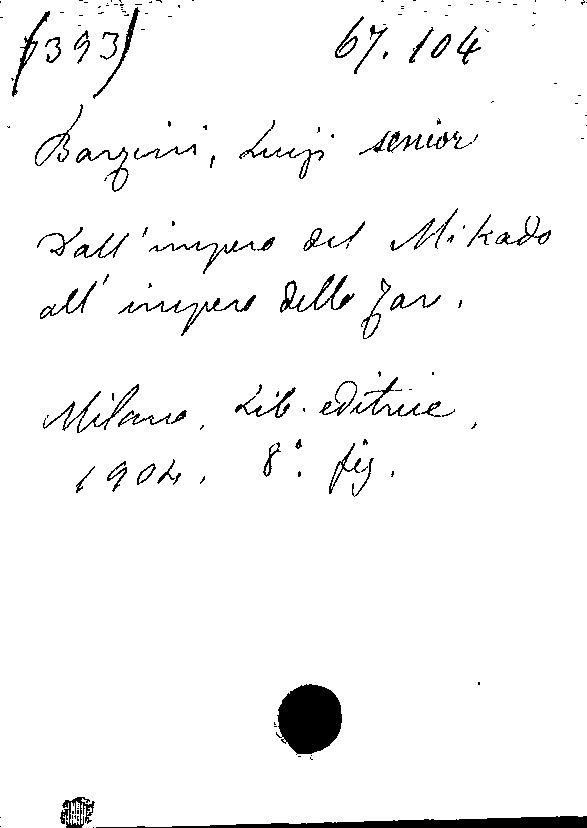 (7393) 67.104
Barzini, Luigi senior
Dall'impero del Mikado
all'impero dello Zar.
Milano, Lib. editrice,
1904. 8°. fig.